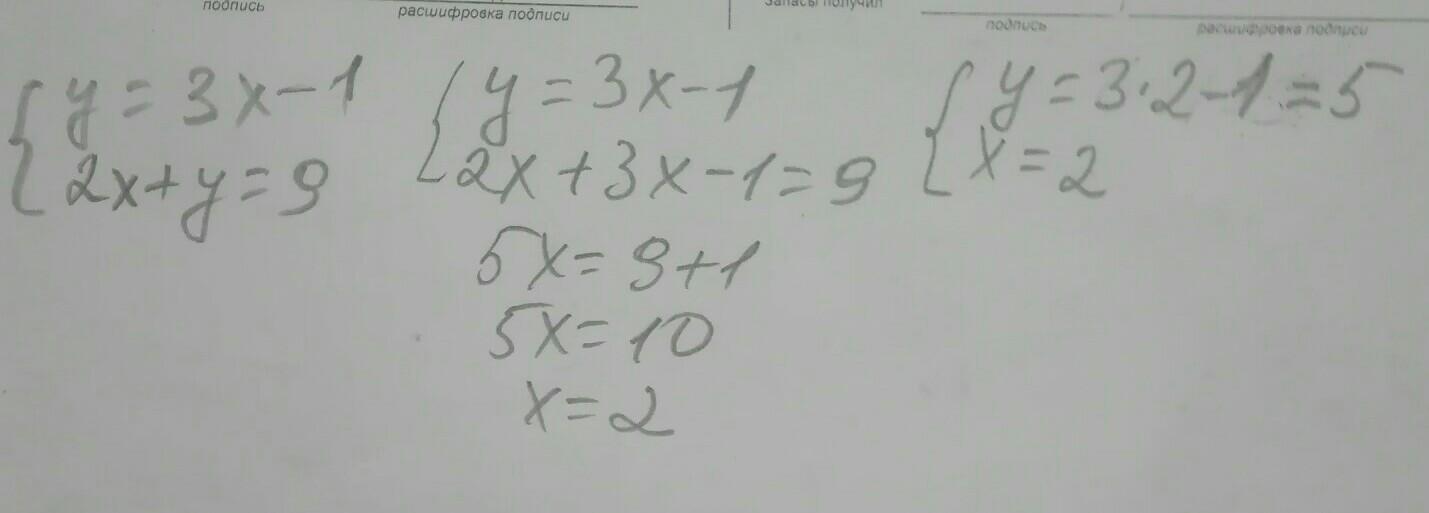 подпись
расшифровка подписи
Запасы получил
подпись
расшифровка подписи
y = 3x - 1
2x + y = 9
y = 3x - 1
2x + 3x - 1 = 9
5x = 9 + 1
5x = 10
x = 2
y = 3·2 - 1 = 5
x = 2